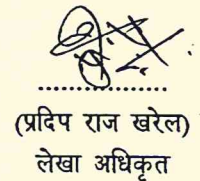 ....................
(प्रदिप राज खरेल)
लेखा अधिकृत